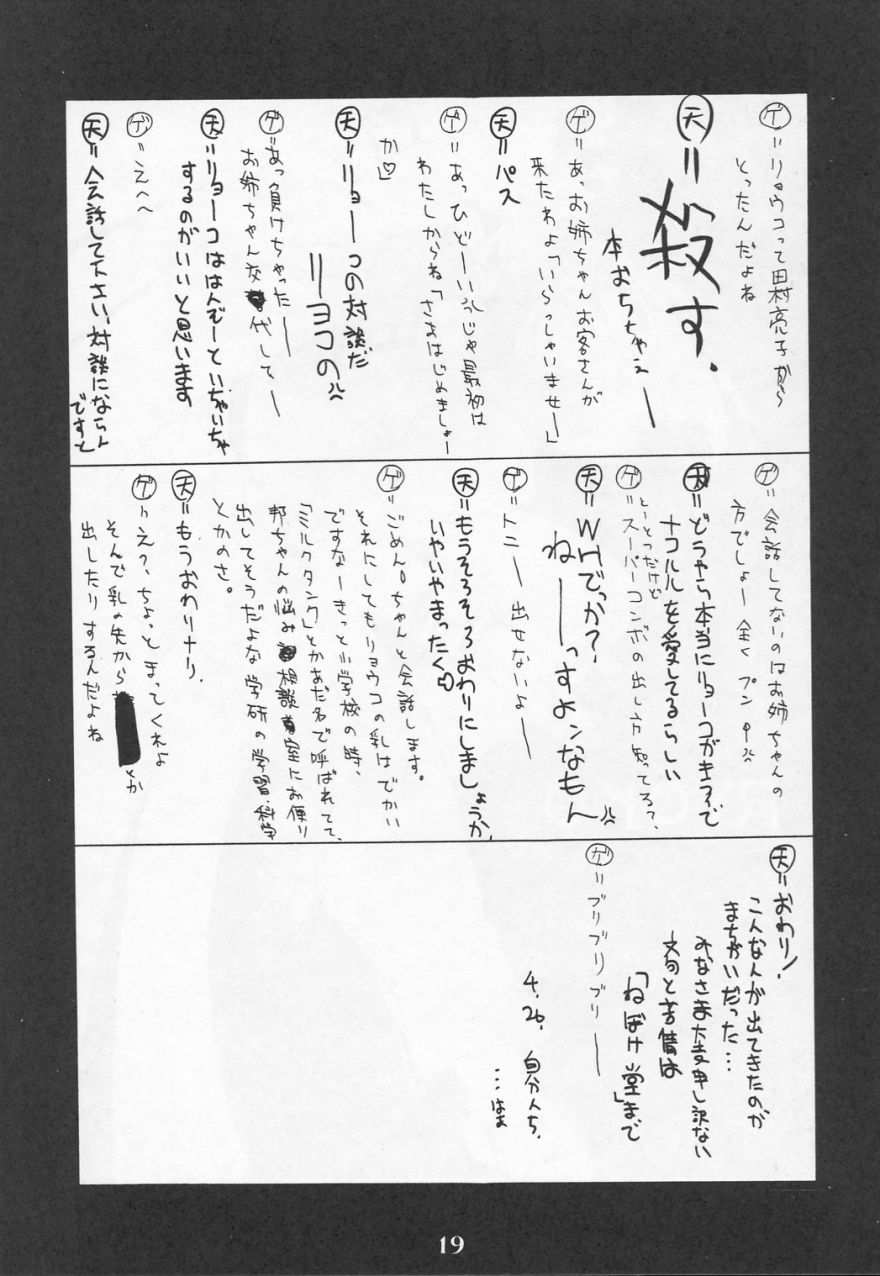 ゲ=リョウコって田村亮子から
とったんだよね
天=殺す.
本おちちゃえー
ゲ=あっお姉ちゃんお客さんが
来たわよ「いらっしゃいませー」
天=パス
ゲ=あっひどーいんじゃ最初は
わたしからね「さあはじめましょー
か♡」
天=リョーコの対談だ
リーヨコの
ゲ=あっ負けちゃったー
お姉ちゃん交代してー
天=リョーコははんぞーといちゃいちゃ
するのがいいと思います
ゲ=えへへ
天=会話して下さい、対談にならん
ですと
ゲ=会話してないのはお姉ちゃんの
方でしょー全くプンプ
天=どうやら本当にリョーコがキライで
ナコルルを愛してるらしい
ゲ=とーとつだけど
スーパーコンボの出し方知ってる?
天=WHでっか?
ねーーっすよンなもん
ゲ=トニー出せないよー
天=もうそろそろおわりにしましょうか、
いやいやまったく
ゲ=ごめん。ちゃんと会話します。
それにしてもリョウコの乳はでかい
ですなーきっと小学校の時、
「ミルクタンク」とかあだ名で呼ばれてて、
邦ちゃんの悩み相談室にお便り
出してそうだよな学研の学習・科学
とかのさ。
天=もうおわりナリ.
ゲ=え?、ちょっとまってくれよ
そんで乳の先から とか
出したりするんだよね
天=おわり!
こんな人が出てきたのが
まちがいだった…
みなさま大変申し訳ない
文句と苦情は
「ねぼけ堂」まで
ゲ=ブリブリブリー
4.26. 自分んち.
…はぁ
19